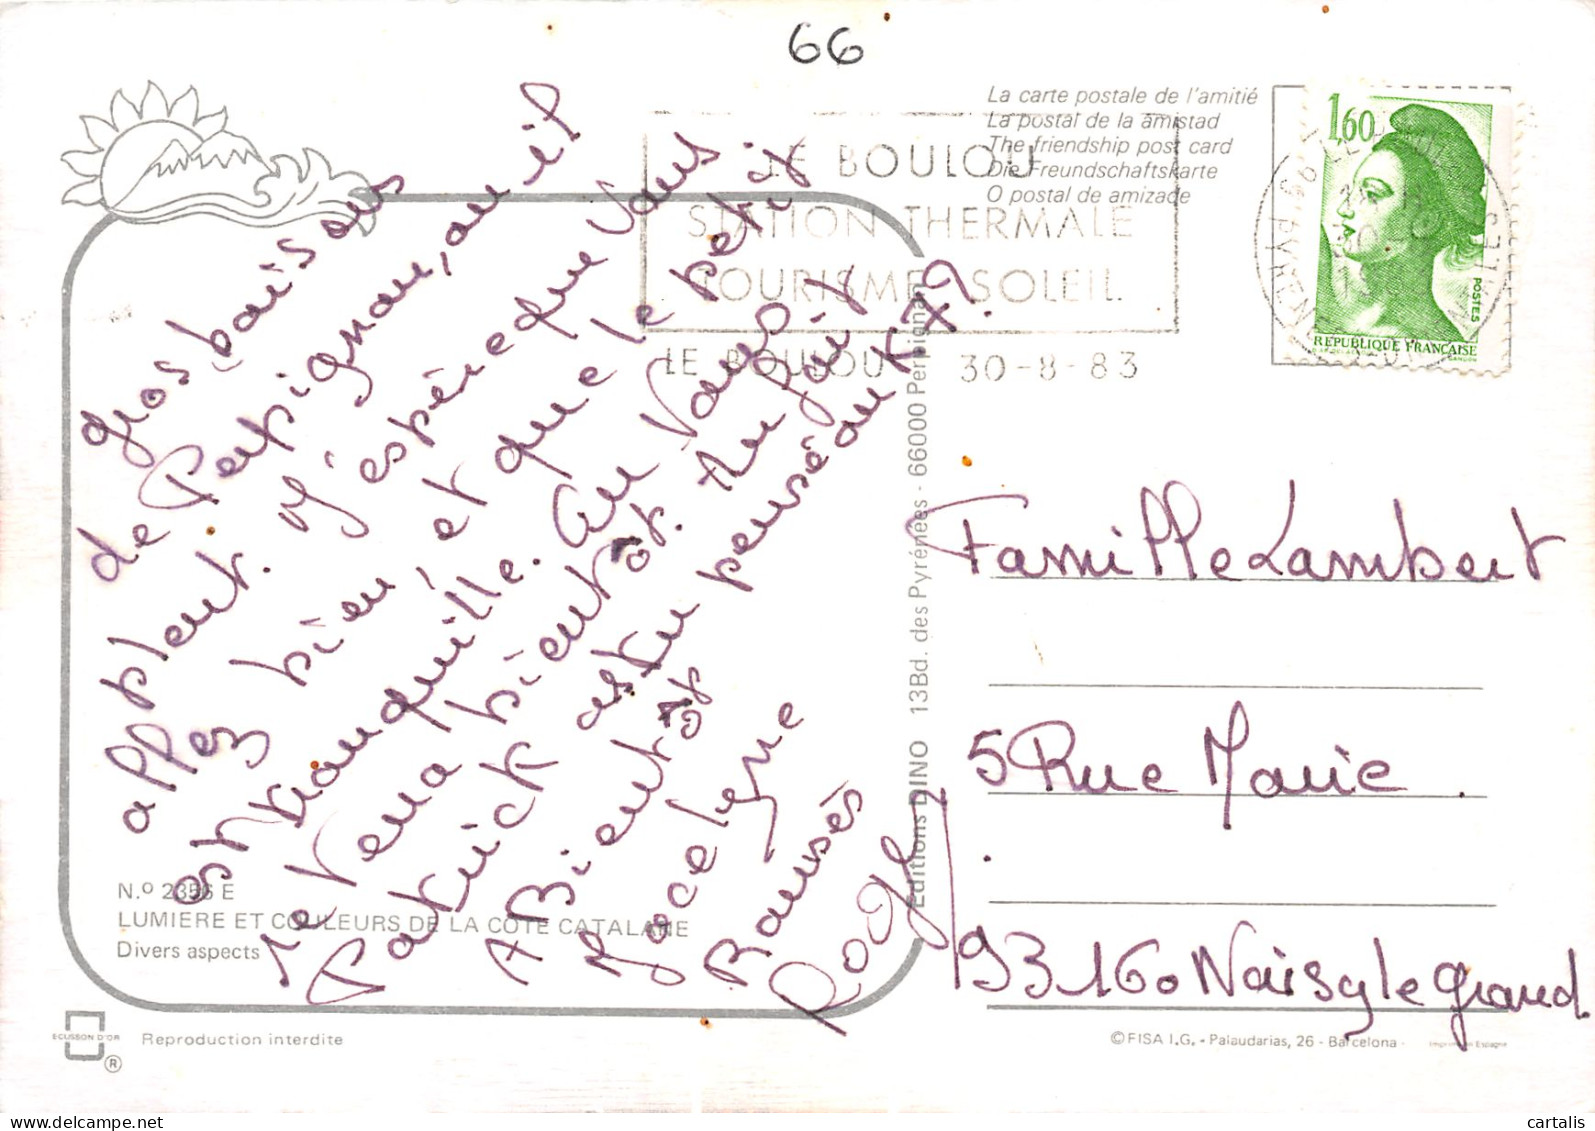 66
La carte postale de l'amitié
La postal de la amistad
The friendship post card
Die Freundschaftskarte
O postal de amizade
LE BOULOU
STATION THERMALE
TOURISME SOLEIL
LE BOULOU
30-8-83
1,60
POSTES
REPUBLIQUE FRANÇAISE
gros baisers
de Perpignan, ou il
pleut. J'espère que Vous
allez bien, et que le petit
est tranquille. Au Vans
je Vena bientôt. Au fait
Patrick as tu pensé au K7?
A Bientôt
Jocelyne
Ramsés
Rogh
N.º 2356 E
LUMIERE ET COULEURS DE LA COTE CATALANE
Divers aspects
ECUSSON D'OR
®
Reproduction interdite
Editions DINO 13Bd. des Pyrénées - 66000 Perpignan
Famille Lambert
5 Rue Marie.
93160 Noisy le grand
© FISA I.G. - Palaudarias, 26 - Barcelona - Imprimé en Espagne
cartalis
delcampe.net